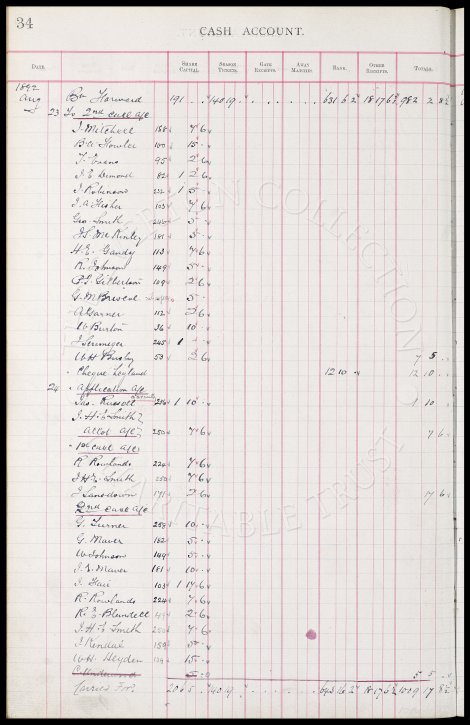 34
CASH ACCOUNT.
DATE. SHARE CAPITAL. SEASON TICKETS. GATE RECEIPTS. AWAY MATCHES. BANK. OTHER RECEIPTS. TOTALS.
1892
Aug Bt Forward 191
23 To 2nd call a/c
J. Mitchell 188 7 6
B. A. Fowler 100 15
F. Evans 95 2 6
J. E. Desmond 82 1 2 6
J. Robinson 1 5
J. A. Fisher 103 7 6
Geo Smith 5
J. S. McKinley 5
H. E. Gandy 113 7 6
R. Johnson 149 5
2 6
5
A Garner 112 2 6
W Burton 36 10
J Scrimeger 245 1
W H Bushy 53 2 6 7 5
Cheque Leyland 12 10 12 10
24 Application a/c
Jas. Russell 256 1 10 1 10
J. H. E. Smith
Allot a/c 250 7 6 7 6
1st call a/c
R Rowlands 224 7 6
J. H. E. Smith 250 7 6
J Lansdown 171 2 6 17 6
2nd call a/c
G. Turner 259 10
G. Maver 182 5
W Johnson 149 5
J. E. Maver 181 10
J. Fair 103 1 17 6
R. Rowlands 224 7 6
R. E. Blundell 2 6
J. H. E Smith 250 7 6
J Kendal 159 5
W. H. Heyden 15
C. Underwood 5 5 5
Carried Ford
EVERTON COLLECTION
CHARITABLE TRUST